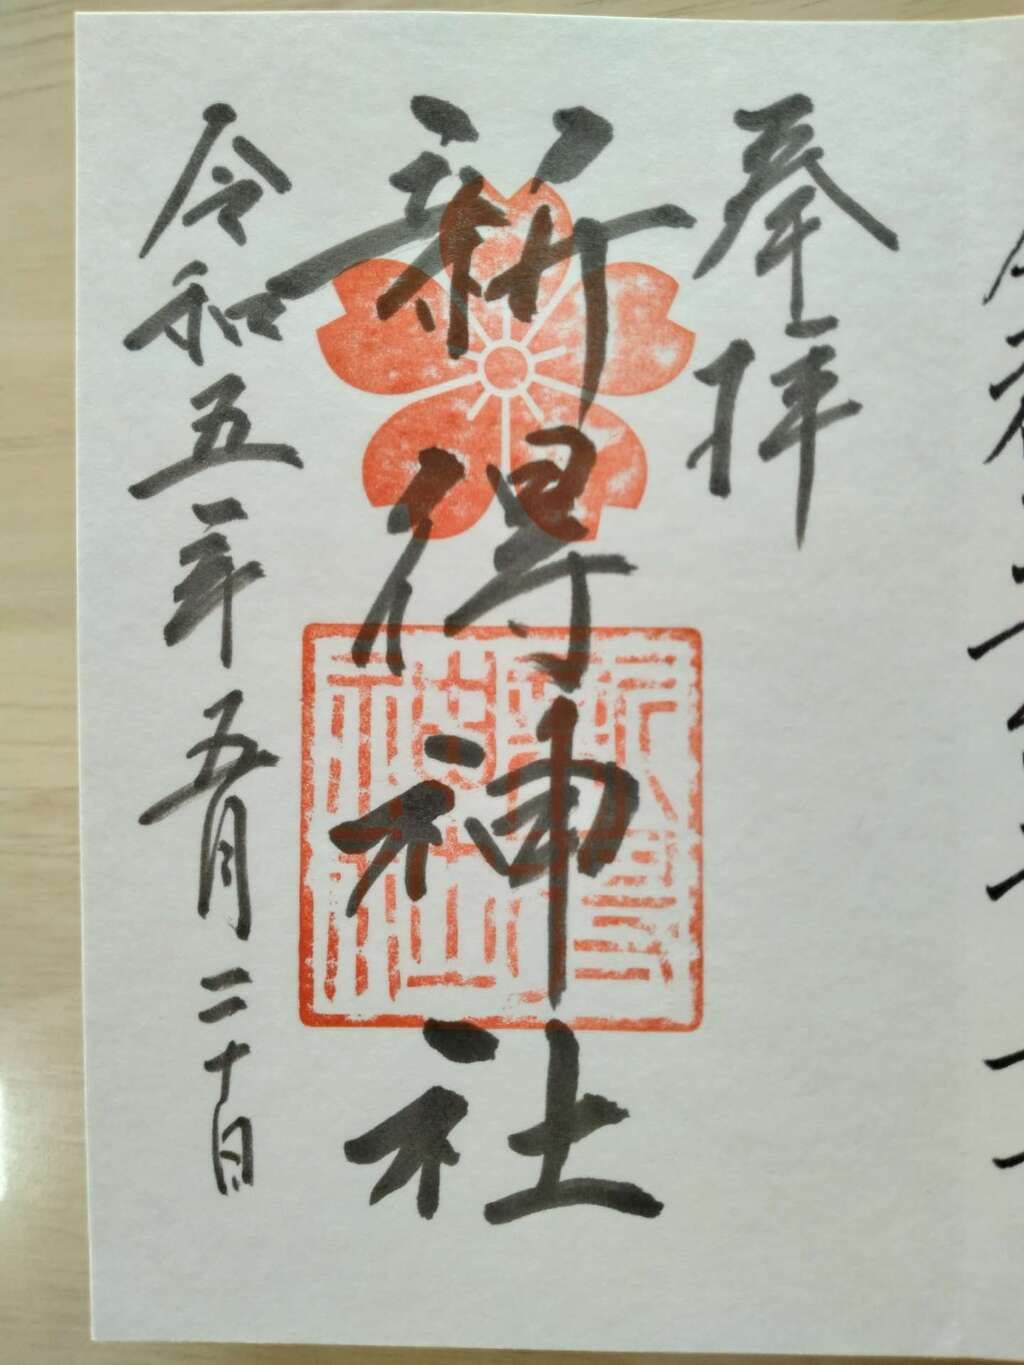 奉拝
新得神社
新得神社
令和五年五月二十日